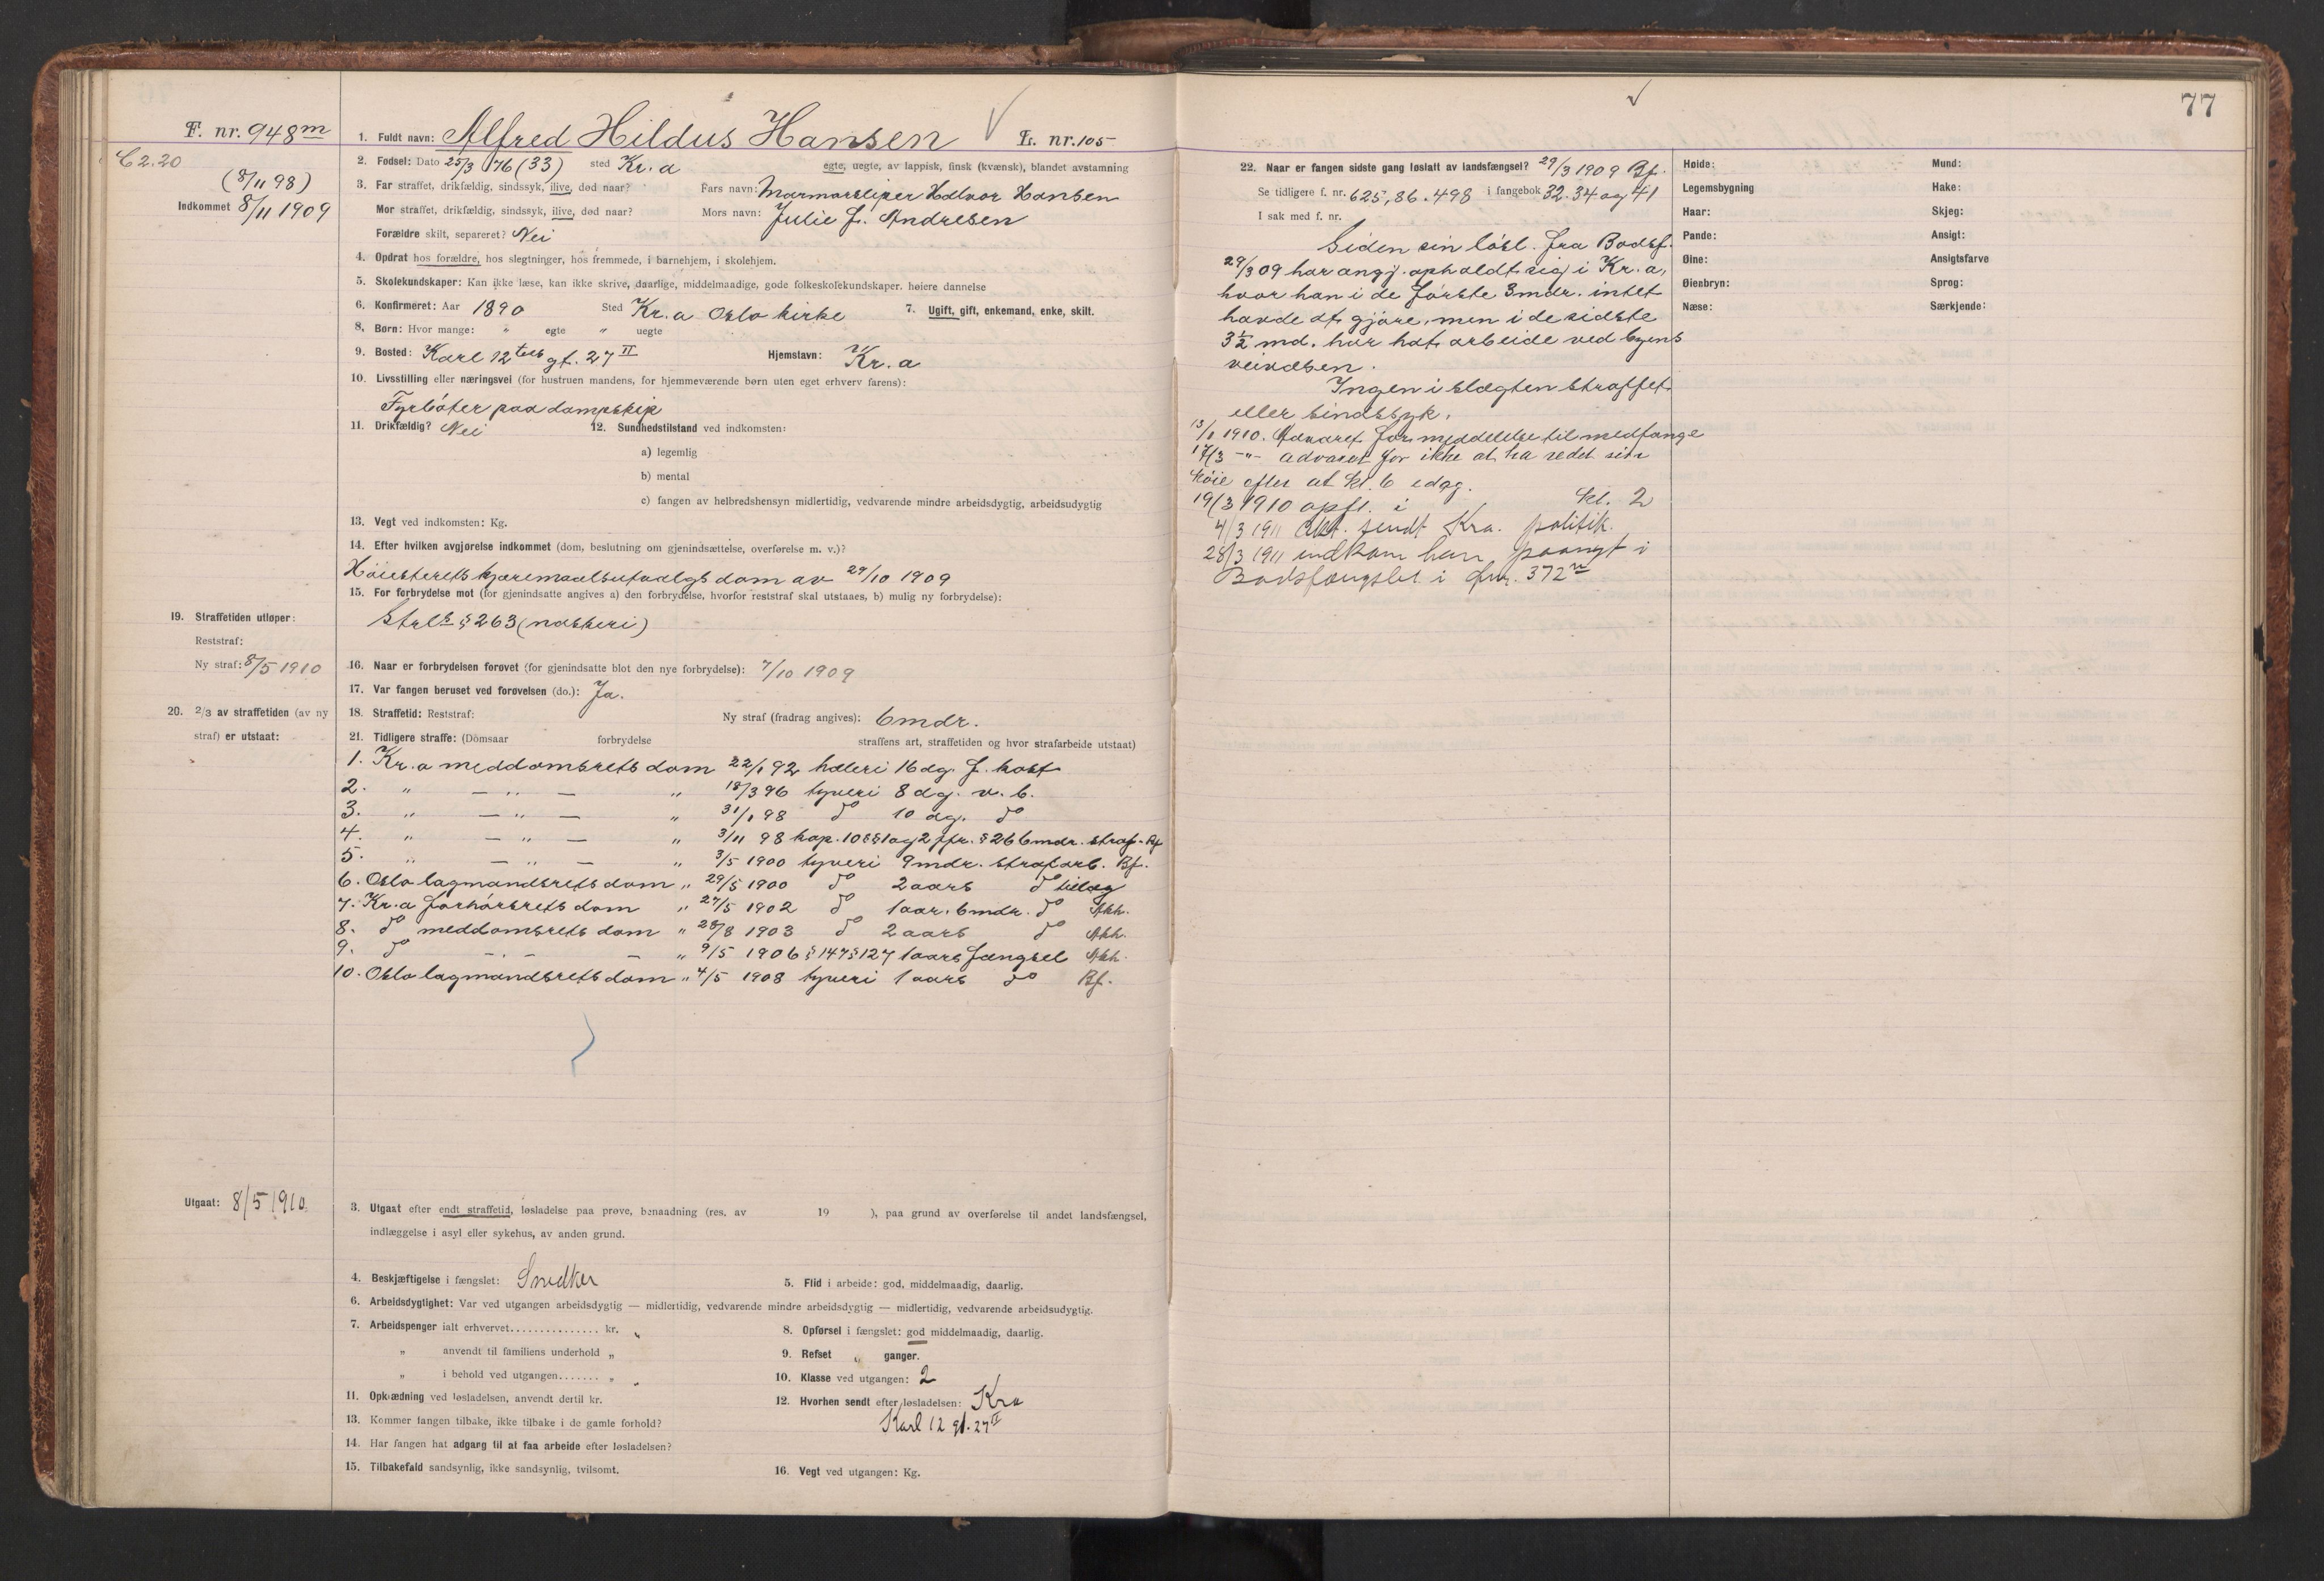 77
F. nr. 948m
C2.20
(8/11 98)
Indkommet 8/11 1909
1. Fuldt navn: Alfred Hildus Hansen L. nr. 105
2. Fødsel: Dato 25/3 76 (33) sted Kr.a egte, uegte, av lappisk, finsk (kvænsk), blandet avstamning
3. Far straffet, drikfældig, sindssyk, ilive, død naar? Fars navn: Marmorsliper Halvor Hansen
Mor straffet, drikfældig, sindssyk, ilive, død naar? Mors navn: Julie f. Andresen
Forældre skilt, separeret? Nei
4. Opdrat hos forældre, hos slegtninger, hos fremmede, i barnehjem, i skolehjem.
5. Skolekundskaper: Kan ikke læse, kan ikke skrive, daarlige, middelmaadige, gode folkeskolekundskaper. høiere dannelse
6. Konfirmeret: Aar 1890 Sted Kr.a Oslo kirke 7. Ugift, gift, enkemand, enke, skilt.
8. Børn: Hvor mange: " egte " uegte
9. Bosted: Karl 12tes gt. 27 II Hjemstavn: Kr.a
10. Livsstilling eller næringsvei (for hustruen mandens, for hjemmeværende børn uten eget erhverv farens):
Fyrbøter paa dampskip
11. Drikfældig? Nei 12. Sundhedstilstand ved indkomsten:
a) legemlig
b) mental
c) fangen av helbredshensyn midlertidig, vedvarende mindre arbeidsdygtig, arbeidsudygtig
13. Vegt ved indkomsten: Kg.
14. Efter hvilken avgjørelse indkommet (dom, beslutning om gjenindsættelse, overførelse m. v.)?
Høiesterets kjæremaalsutvalgs dom av 29/10 1909
15. For forbrydelse mot (for gjenindsatte angives a) den forbrydelse, hvorfor reststraf skal utstaaes, b) mulig ny forbrydelse):
Strl. § 263 (naskeri)
19. Straffetiden utløper:
Reststraf:
Ny straf: 8/5 1910
16. Naar er forbrydelsen forøvet (for gjenindsatte blot den nye forbrydelse): 7/10 1909
17. Var fangen beruset ved forøvelsen (do.): Ja.
20. 2/3 av straffetiden (av ny
straf) er utstaat:
18. Straffetid: Reststraf: Ny straf (fradrag angives): 6 mdr.
21. Tidligere straffe: (Domsaar forbrydelse straffens art, straffetiden og hvor strafarbeide utstaat)
1. Kr.a meddomsrets dom 22/1 92 hæleri 16 dg. f. kost
2. " — " — " 18/3 96 tyveri 8 dg. v. b.
3. " — " — " 31/1 98 do 10 dg. do
4. " — " — " 3/11 98 kap. 10 §§ 1 og 2 jfr. § 26 6 mdr. straf. Bf
5. " — " — " 3/5 1900 tyveri 9 mdr. strafarb. Bf.
6. Oslo lagmandsrets dom " 29/5 1900 do 2 aars do tillæg
7. Kr.a forhørsrets dom " 27/5 1902 do 1 aar. 6 mdr. do Akh.
8. do meddomsrets dom " 28/8 1903 do 2 aars do Akh.
9. do — " — " 9/5 1906 § 147 § 127 1 aars fængsel Akh.
10. Oslo lagmandsrets dom " 4/5 1908 tyveri 1 aars do Bf.
Utgaat: 8/5 1910
3. Utgaat efter endt straffetid, løsladelse paa prøve, benaadning (res. av 19 ), paa grund av overførelse til andet landsfængsel,
indlæggelse i asyl eller sykehus, av anden grund.
4. Beskjæftigelse i fængslet: Snedker 5. Flid i arbeide: god, middelmaadig, daarlig.
6. Arbeidsdygtighet: Var ved utgangen arbeidsdygtig — midlertidig, vedvarende mindre arbeidsdygtig — midlertidig, vedvarende arbeidsudygtig.
7. Arbeidspenger ialt erhvervet............... kr. " 8. Opførsel i fængslet: god middelmaadig, daarlig.
" anvendt til familiens underhold " 9. Refset " ganger.
" i behold ved utgangen....... " " 10. Klasse ved utgangen: 2
11. Opklædning ved løsladelsen, anvendt dertil kr. 12. Hvorhen sendt efter løsladelsen: Kra
13. Kommer fangen tilbake, ikke tilbake i de gamle forhold? Karl 12 gt. 27 II
14. Har fangen hat adgang til at faa arbeide efter løsladelsen?
15. Tilbakefald sandsynlig, ikke sandsynlig, tvilsomt. 16. Vegt ved utgangen: Kg.
22. Naar er fangen sidste gang løslatt av landsfængsel? 29/3 1909 Bf.
Se tidligere f. nr. 625, 86. 498 i fangebok 32. 34 og 41
I sak med f. nr.
Siden sin løsl. fra Bodsf.
29/3 09 har angj. opholdt sig i Kr.a,
hvor han i de første 3 mdr. intet
havde at gjøre, men i de sidste
3½ md. har hat arbeide ved byens
veivæsen.
Ingen i slægten straffet
eller sindssyk.
13/1 1910. Advaret for meddelelse til medfange
17/3 -"- advaret for ikke at ha redet sin
køie efter at kl. 6 idag.
19/3 1910 opfl. i kl. 2
4/3 1911 Akt. sendt Kra. politik.
28/3 1911 indkom han paanyt i
Bodsfængslet i fnr. 372n
Høide: Mund:
Legemsbygning Hake:
Haar: Skjeg:
Pande: Ansigt:
Øine: Ansigtsfarve
Øienbryn: Sprog:
Næse: Særkjende: